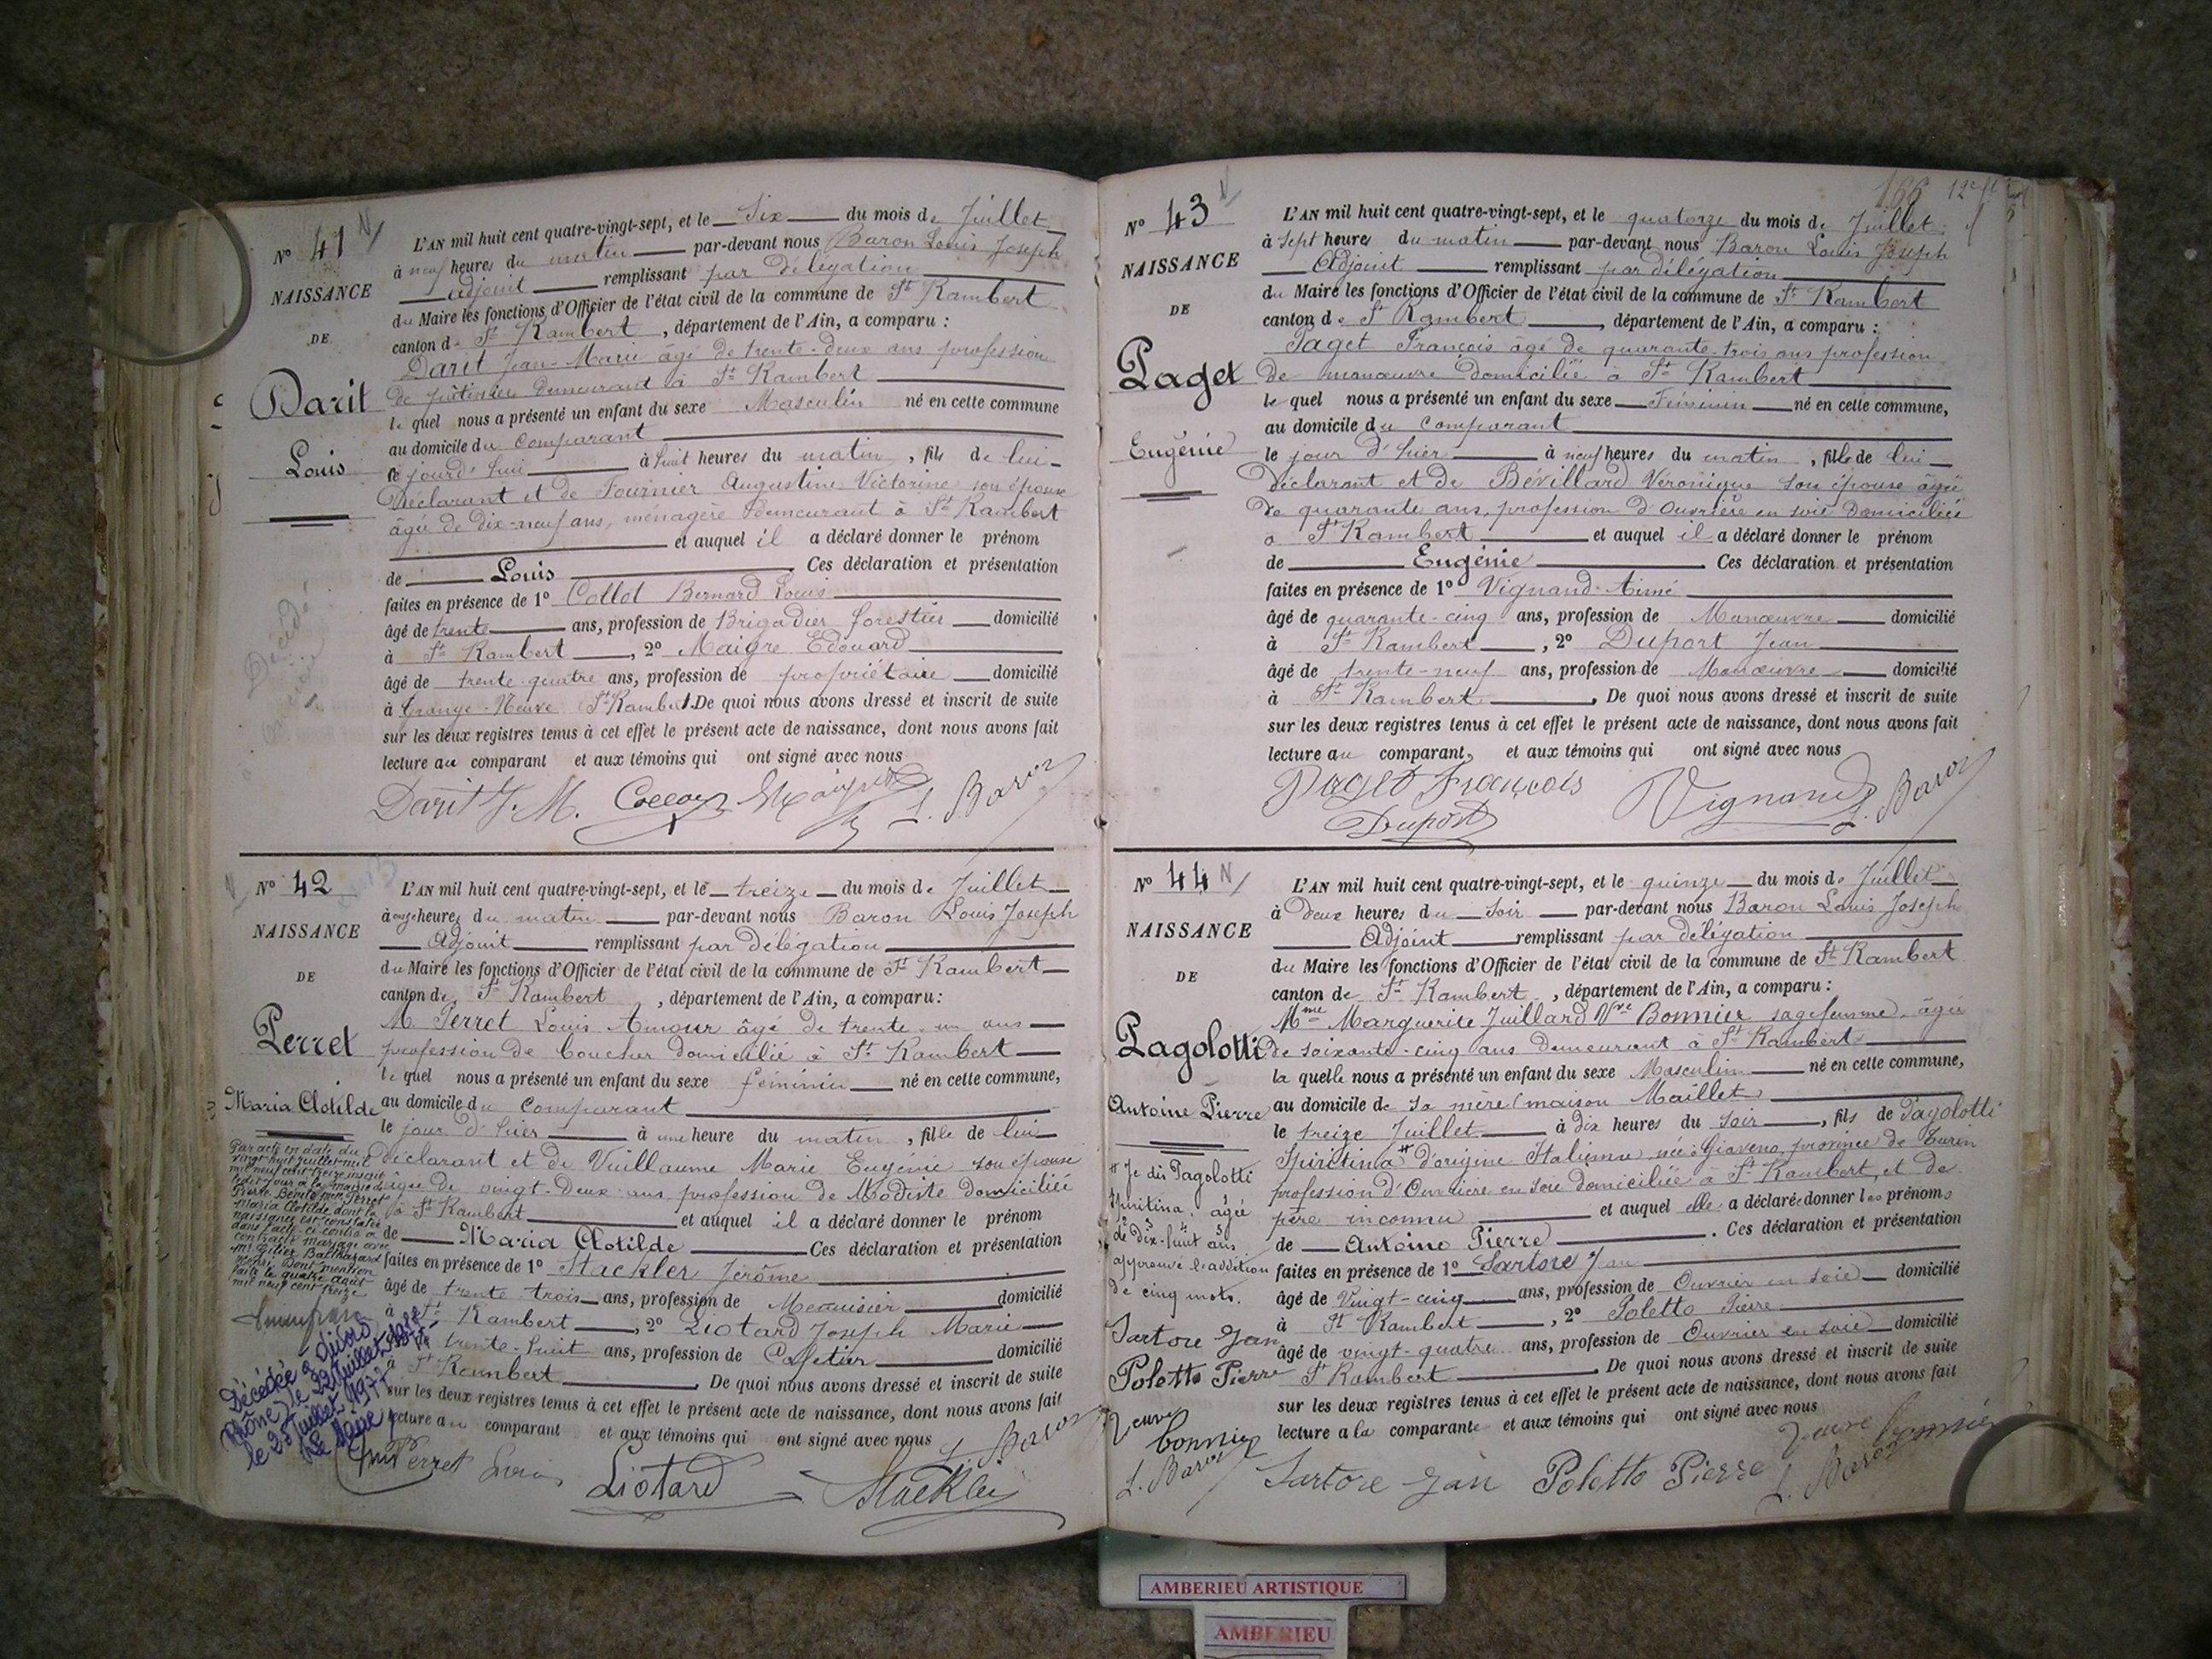 N° 41
NAISSANCE
DE
Darit
Louis
L'AN mil huit cent quatre-vingt-sept, et le six du mois de Juillet
à neuf heures du matin par-devant nous Baron Louis Joseph
Adjoint remplissant par délégation
du Maire les fonctions d'Officier de l'état civil de la commune de St Rambert
canton de St Rambert, département de l'Ain, a comparu :
Darit Jean-Marie âgé de trente-deux ans profession
de demeurant à St Rambert
le quel nous a présenté un enfant du sexe Masculin né en cette commune
au domicile du comparant
le jourd'hui à huit heures du matin, fils de lui
Déclarant et de Fournier Augustine Victorine son épouse
âgée de dix-neuf ans, ménagère demeurant à St Rambert
et auquel il a déclaré donner le prénom
de Louis Ces déclaration et présentation
faites en présence de 1° Collot Bernard Louis
âgé de trente ans, profession de Brigadier forestier domicilié
à St Rambert, 2° Maigre Edouard
âgé de trente-quatre ans, profession de propriétaire domicilié
à Grange-Neuve St Rambert. De quoi nous avons dressé et inscrit de suite
sur les deux registres tenus à cet effet le présent acte de naissance, dont nous avons fait
lecture au comparant et aux témoins qui ont signé avec nous
Darit J. M. L. Baron
N° 42
NAISSANCE
DE
Perret
Maria Clotilde
Par acte en date du
vingt-huit juillet mil
neuf cent treize inscrit
Pierre Bénite Perret
Maria Clotilde dont la
naissance est constatée
dans l'acte ci-contre a
contracté mariage avec
Mr Balthazard
Dont mention
faite le quatre août
mil neuf cent treize
Décédée à
Rhône, le 22 Juillet
le 25 Juillet 1977
Le Maire
L'AN mil huit cent quatre-vingt-sept, et le treize du mois de Juillet
à onze heures du matin par-devant nous Baron Louis Joseph
Adjoint remplissant par délégation
du Maire les fonctions d'Officier de l'état civil de la commune de St Rambert
canton de St Rambert, département de l'Ain, a comparu :
M. Perret Louis Amour âgé de trente-un ans
profession de boucher domicilié à St Rambert
le quel nous a présenté un enfant du sexe féminin né en cette commune,
au domicile du comparant
le jour d'hier à une heure du matin, fille de lui
déclarant et de Vuillaume Marie Eugénie son épouse
âgée de vingt-deux ans profession de Modiste domiciliée
à St Rambert et auquel il a déclaré donner le prénom
de Maria Clotilde Ces déclaration et présentation
faites en présence de 1° Stackler Jérôme
âgé de trente-trois ans, profession de Menuisier domicilié
à St Rambert, 2° Liotard Joseph Marie
trente-huit ans, profession de Cafetier domicilié
à St Rambert. De quoi nous avons dressé et inscrit de suite
sur les deux registres tenus à cet effet le présent acte de naissance, dont nous avons fait
lecture au comparant et aux témoins qui ont signé avec nous
L. Baron
Perret Louis Liotard Stackler
N° 43
NAISSANCE
DE
Paget
Eugénie
L'AN mil huit cent quatre-vingt-sept, et le quatorze du mois de Juillet
à sept heures du matin par-devant nous Baron Louis Joseph
Adjoint remplissant par délégation
du Maire les fonctions d'Officier de l'état civil de la commune de St Rambert
canton de St Rambert, département de l'Ain, a comparu :
Paget François âgé de quarante-trois ans profession
de manœuvre domicilié à St Rambert
le quel nous a présenté un enfant du sexe Féminin né en cette commune,
au domicile du comparant
le jour d'hier à neuf heures du matin, fille de lui
Déclarant et de Bévillard Véronique son épouse âgée
de quarante ans, profession d'Ouvrière en soie domiciliée
à St Rambert et auquel il a déclaré donner le prénom
de Eugénie. Ces déclaration et présentation
faites en présence de 1° Vignand Aimé
âgé de quarante-cinq ans, profession de Manœuvre domicilié
à St Rambert, 2° Duport Jean
âgé de trente-neuf ans, profession de Manœuvre domicilié
à St Rambert. De quoi nous avons dressé et inscrit de suite
sur les deux registres tenus à cet effet le présent acte de naissance, dont nous avons fait
lecture au comparant, et aux témoins qui ont signé avec nous
Paget François Vignand L. Baron
Duport
N° 44
NAISSANCE
DE
Pagolotti
Antoine Pierre
Je dis Pagolotti
Spiritina, âgée
de Dix-huit ans
approuvé l'addition
de cinq mots.
Sartore Jean
Poletto Pierre
Veuve
bonnier
L. Baron
L'AN mil huit cent quatre-vingt-sept, et le quinze du mois de Juillet
à deux heures du soir par-devant nous Baron Louis Joseph
Adjoint remplissant par délégation
du Maire les fonctions d'Officier de l'état civil de la commune de St Rambert
canton de St Rambert, département de l'Ain, a comparu :
Mme Marguerite Juillard Vve Bonnier sagefemme, âgée
de soixante-cinq ans demeurant à St Rambert
la quelle nous a présenté un enfant du sexe Masculin né en cette commune,
au domicile de sa mère (maison Maillet)
le treize Juillet à dix heures du soir, fils de Pagolotti
Spiritina d'origine Italienne née à Giaveno, province de Turin
profession d'Ouvrière en soie domiciliée à St Rambert, et de
père inconnu et auquel elle a déclaré donner les prénoms
de Antoine Pierre. Ces déclaration et présentation
faites en présence de 1° Sartore Jean
âgé de Vingt-cinq ans, profession de Ouvrier en soie domicilié
à St Rambert, 2° Poletto Pierre
âgé de vingt-quatre ans, profession de Ouvrier en soie domicilié
St Rambert. De quoi nous avons dressé et inscrit de suite
sur les deux registres tenus à cet effet le présent acte de naissance, dont nous avons fait
lecture a la comparante et aux témoins qui ont signé avec nous
Veuve bonnier
Sartore Jean Poletto Pierre L. Baron
AMBERIEU ARTISTIQUE
AMBERIEU